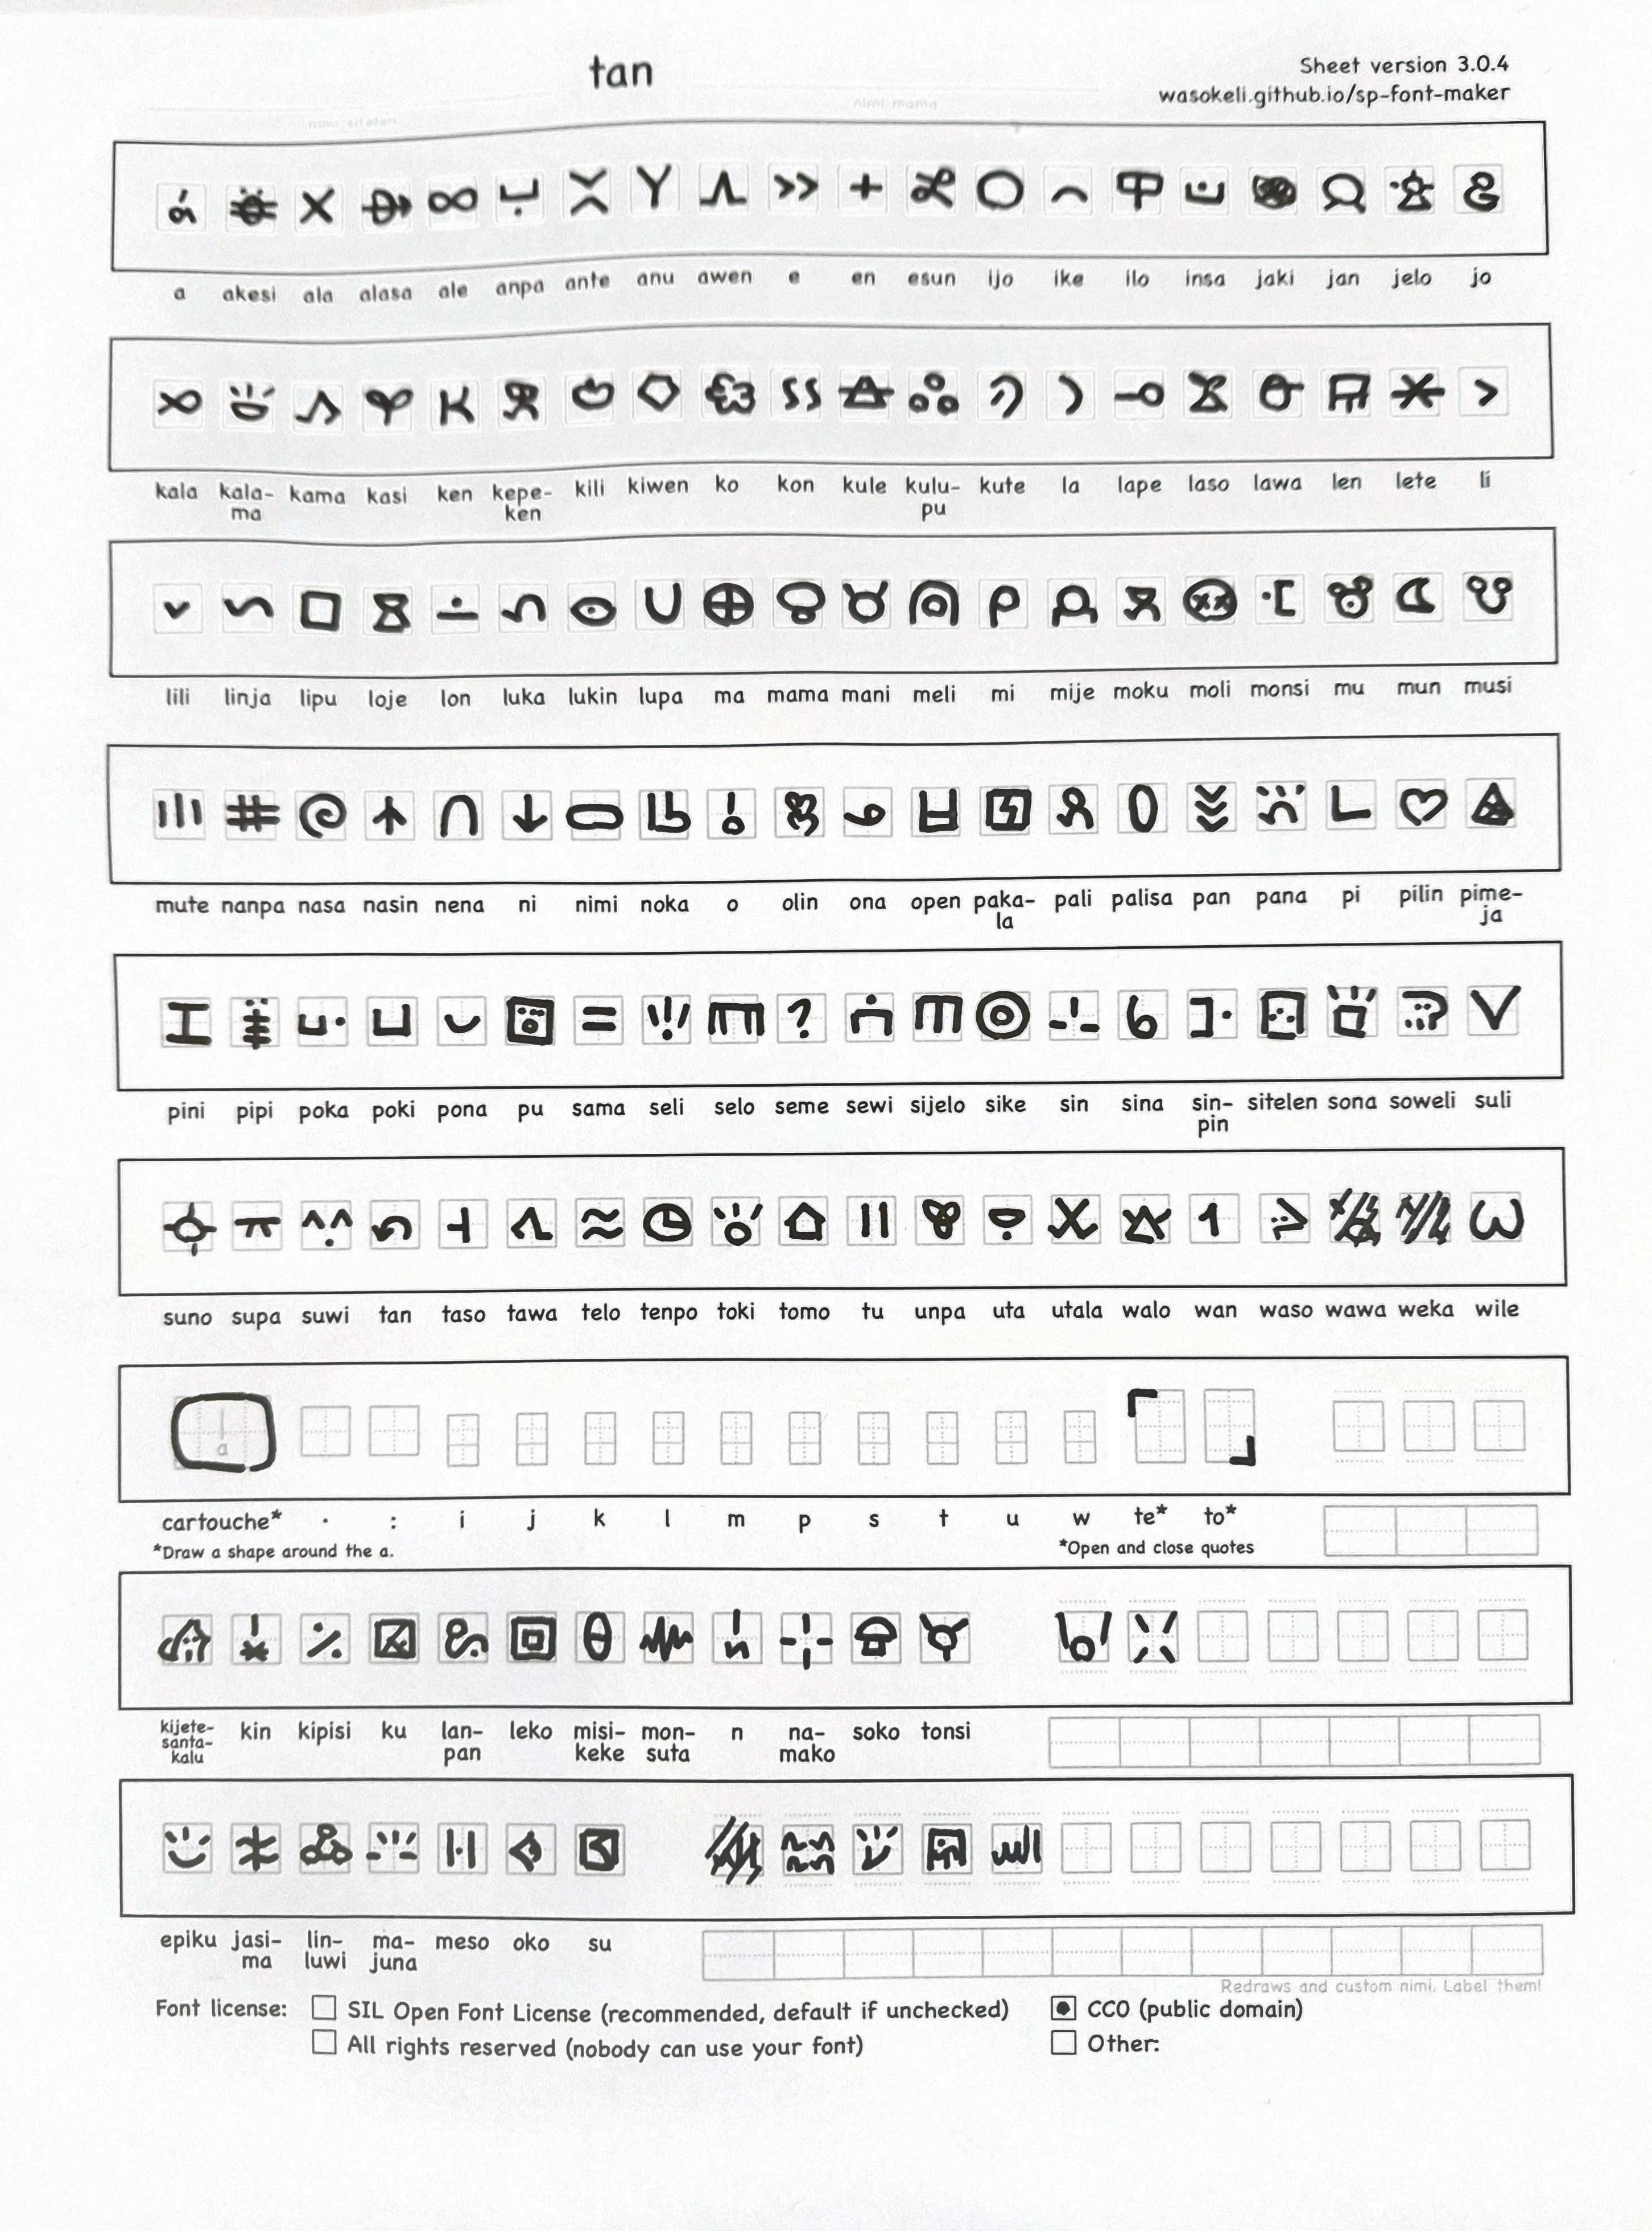 tan
Sheet version 3.0.4
wasokeli.github.io/sp-font-maker
nimi mama
nimi sitelen
a akesi ala alasa ale anpa ante anu awen e en esun ijo ike ilo insa jaki jan jelo jo
kala kala- kama kasi ken kepe- kili kiwen ko kon kule kulu- kute la lape laso lawa len lete li
ma ken pu
lili linja lipu loje lon luka lukin lupa ma mama mani meli mi mije moku moli monsi mu mun musi
mute nanpa nasa nasin nena ni nimi noka o olin ona open paka- pali palisa pan pana pi pilin pime-
la ja
pini pipi poka poki pona pu sama seli selo seme sewi sijelo sike sin sina sin- sitelen sona soweli suli
pin
suno supa suwi tan taso tawa telo tenpo toki tomo tu unpa uta utala walo wan waso wawa weka wile
a
cartouche* · : i j k l m p s t u w te* to*
*Draw a shape around the a. *Open and close quotes
kijete- kin kipisi ku lan- leko misi- mon- n na- soko tonsi
santa- pan keke suta mako
kalu
epiku jasi- lin- ma- meso oko su
ma luwi juna
Redraws and custom nimi. Label them!
Font license: SIL Open Font License (recommended, default if unchecked) CC0 (public domain)
All rights reserved (nobody can use your font) Other: